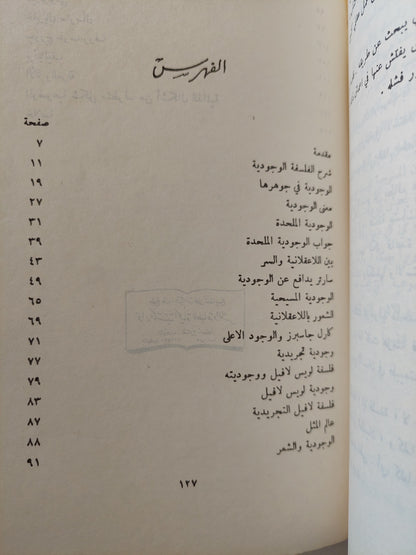 الفهرس
صفحة
مقدمة ٧
شرح الفلسفة الوجودية ١١
الوجودية في جوهرها ١٩
معنى الوجودية ٢٧
الوجودية الملحدة ٣١
جواب الوجودية الملحدة ٣٩
بين اللاعقلانية والسر ٤٣
سارتر يدافع عن الوجودية ٤٩
الوجودية المسيحية ٦٥
الشعور باللاعقلانية ٦٩
كارل جاسبرز والوجود الاعلى ٧١
وجودية تجريدية ٧٧
فلسفة لويس لافيل ووجوديته ٧٩
وجودية لويس لافيل ٨٣
فلسفة لافيل التجريدية ٨٧
عالم المثل ٨٨
الوجودية والشعر ٩١
١٢٧
يبحث عن طريق
يفتش عنها في
فشله